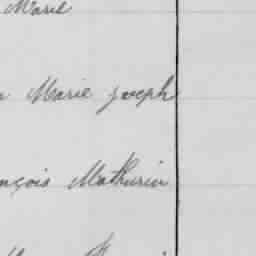 Marie
Marie joseph
nçois Mathurin